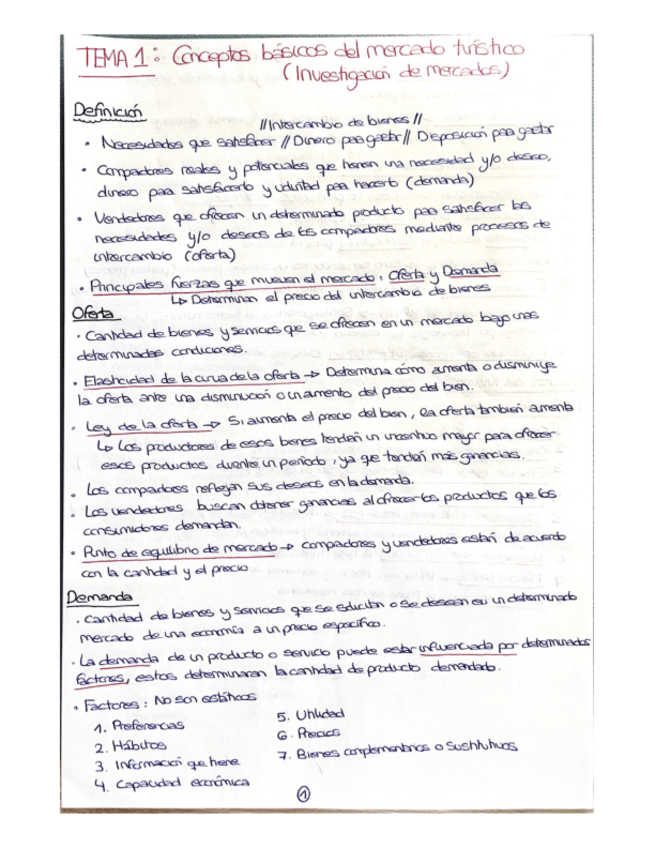 TEMA 1: Conceptos básicos del mercado turístico
(Investigación de mercados)
Definición
//Intercambio de bienes//
· Necesidades que satisfacer // Dinero para gastar // Disposición para gastar
· Compradores reales y potenciales que tienen una necesidad y/o deseo,
dinero para satisfacerlo y voluntad para hacerlo (demanda)
· Vendedores que ofrecen un determinado producto para satisfacer las
necesidades y/o deseos de los compradores mediante procesos de
intercambio (oferta)
· Principales fuerzas que mueven el mercado: Oferta y Demanda
↳ Determinan el precio del intercambio de bienes
Oferta
· Cantidad de bienes y servicios que se ofrecen en un mercado bajo unas
determinadas condiciones.
· Elasticidad de la curva de la oferta → Determina cómo aumenta o disminuye
la oferta ante una disminución o un aumento del precio del bien.
· Ley de la oferta → Si aumenta el precio del bien, la oferta también aumenta
↳ Los productores de esos bienes tendrán un incentivo mayor para ofrecer
esos productos durante un periodo, ya que tendrán más ganancias.
· Los compradores reflejan sus deseos en la demanda.
· Los vendedores buscan obtener ganancias al ofrecer los productos que los
consumidores demandan.
· Punto de equilibrio de mercado → compradores y vendedores están de acuerdo
con la cantidad y el precio
Demanda
· Cantidad de bienes y servicios que se solicitan o se desean en un determinado
mercado de una economía a un precio específico.
· La demanda de un producto o servicio puede estar influenciada por determinados
factores, estos determinaran la cantidad de producto demandado.
· Factores: No son estáticos
1. Preferencias
2. Hábitos
3. Información que tiene
4. Capacidad económica
5. Utilidad
6. Precios
7. Bienes complementarios o sustitutivos
1